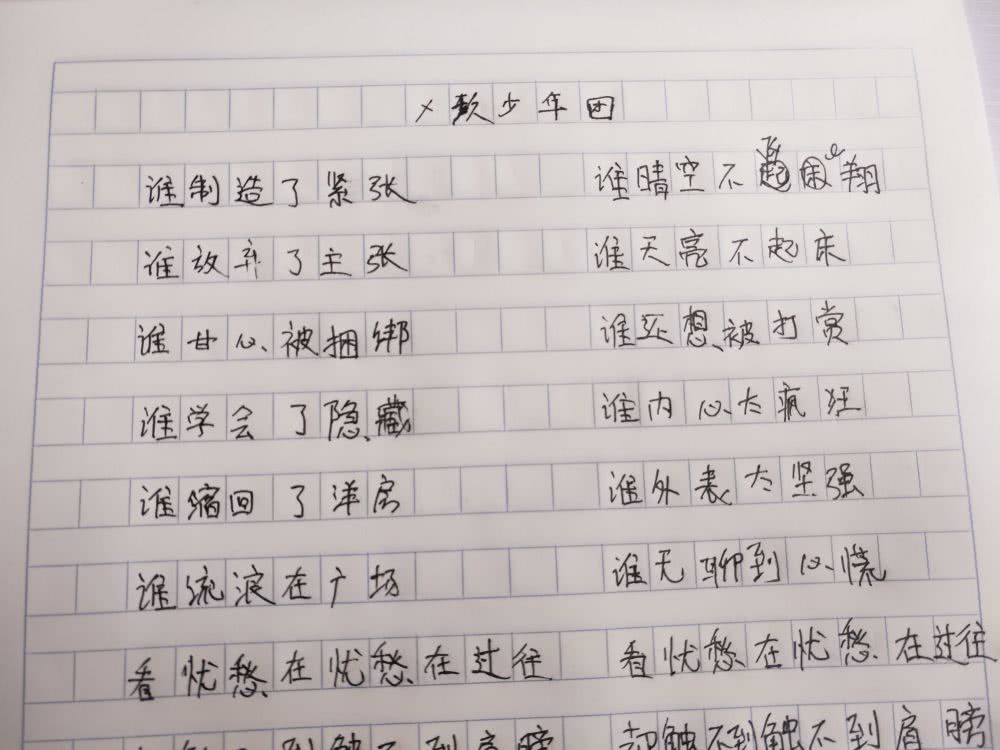 少年团
谁制造了紧张
谁放弃了主张
谁甘心被捆绑
谁学会了隐藏
谁缩回了洋房
谁流浪在广场
看忧愁在忧愁在过往
到触不到肩膀
谁晴空不飞翔
谁天亮不起床
谁还想被打赏
谁内心太疯狂
谁外表太坚强
谁无聊到心慌
看忧愁在忧愁在过往
却触不到触不到肩膀